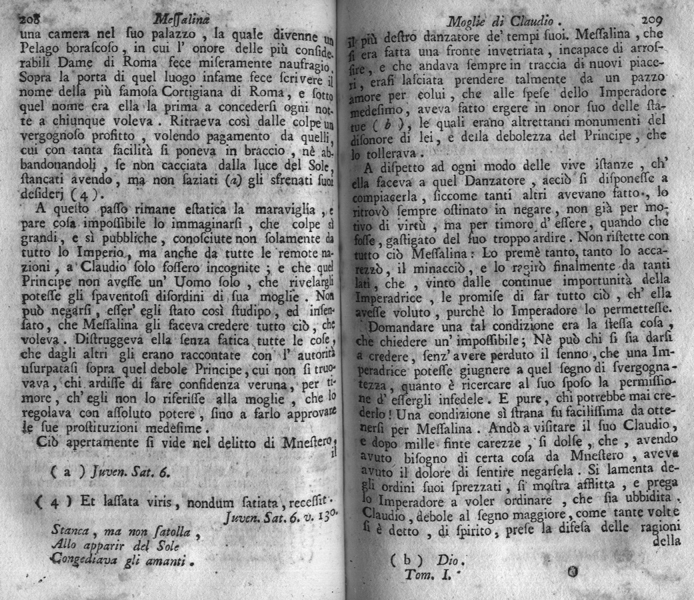 208 Messalina
una camera nel suo palazzo, la quale divenne un
Pelago borascoso, in cui l' onore delle più conside-
rabili Dame di Roma fece miseramente naufragio.
Sopra la porta di quel luogo infame fece scrivere il
nome della più famosa Cortigiana di Roma, e sotto
quel nome era ella la prima a concedersi ogni not-
te a chiunque voleva. Ritraeva così dalle colpe un
vergognoso profitto, volendo pagamento da quelli,
cui con tanta facilità si poneva in braccio, nè ab-
bandonandoli, se non cacciata dalla luce del Sole,
stancati avendo, ma non saziati (a) gli sfrenati suoi
desiderj (4).
A questo passo rimane estatica la maraviglia, e
pare cosa impossibile lo immaginarsi, che colpe sì
grandi, e sì pubbliche, conosciute non solamente da
tutto lo Imperio, ma anche da tutte le remote na-
zioni, a Claudio solo fossero incognite; e che quel
Principe non avesse un' Uomo solo, che rivelargli
potesse gli spaventosi disordini di sua moglie. Non
può negarsi, esser' egli stato così studipo, ed insen-
sato, che Messalina gli faceva credere tutto ciò, che
voleva. Distruggeva ella senza fatica tutte le cose,
che dagli altri gli erano raccontate con l' autorità
usurpatasi sopra quel debole Principe, cui non si truo-
vava, chi ardisse di fare confidenza veruna, per ti-
more, ch' egli non lo riferisse alla moglie, che lo
regolava con assoluto potere, sino a farlo approvare
le sue prostituzioni medesime.
Ciò apertamente si vide nel delitto di Mnestero,
il
(a) Juven. Sat. 6.
(4) Et lassata viris, nondum satiata, recessit.
Juven. Sat. 6. v. 130.
Stanca, ma non satolla,
Allo apparir del Sole
Congediava gli amanti.
Moglie di Claudio. 209
il più destro danzatore de' tempi suoi. Messalina, che
si era fatta una fronte invetriata, incapace di arros-
sire, e che andava sempre in traccia di nuovi piace-
ri, erasi lasciata prendere talmente da un pazzo
amore per colui, che alle spese dello Imperadore
medesimo, aveva fatto ergere in onor suo delle sta-
tue (b), le quali erano altrettanti monumenti del
disonore di lei, e della debolezza del Principe, che
lo tollerava.
A dispetto ad ogni modo delle vive istanze, ch'
ella faceva a quel Danzatore, acciò si disponesse a
compiacerla, siccome tanti altri avevano fatto, lo
ritrovò sempre ostinato in negare, non già per mo-
tivo di virtù, ma per timore d' essere, quando che
fosse, gastigato del suo troppo ardire. Non ristette con
tutto ciò Messalina: Lo premè tanto, tanto lo acca-
rezzò, il minacciò, e lo regirò finalmente da tanti
lati, che, vinto dalle continue importunità della
Imperadrice, le promise di far tutto ciò, ch' ella
avesse voluto, purchè lo Imperadore lo permettesse.
Domandare una tal condizione era la stessa cosa,
che chiedere un' impossibile; Nè può chi si sia darsi
a credere, senz' avere perduto il senno, che una Im-
peradrice potesse giugnere a quel segno di svergogna-
tezza, quanto è ricercare al suo sposo la permissio-
ne d' essergli infedele. E pure, chi potrebbe mai cre-
derlo! Una condizione sì strana fu facilissima da otte-
nersi per Messalina. Andò a visitare il suo Claudio,
e dopo mille finte carezze, si dolse, che, avendo
avuto bisogno di certa cosa da Mnestero, aveva
avuto il dolore di sentire negarsela. Si lamenta de-
gli ordini suoi sprezzati, si mostra afflitta, e prega
lo Imperadore a voler ordinare, che sia ubbidita.
Claudio, debole al segno maggiore, come tante volte
si è detto, di spirito, prese la difesa delle ragioni
della
(b) Dio.
Tom. I. O